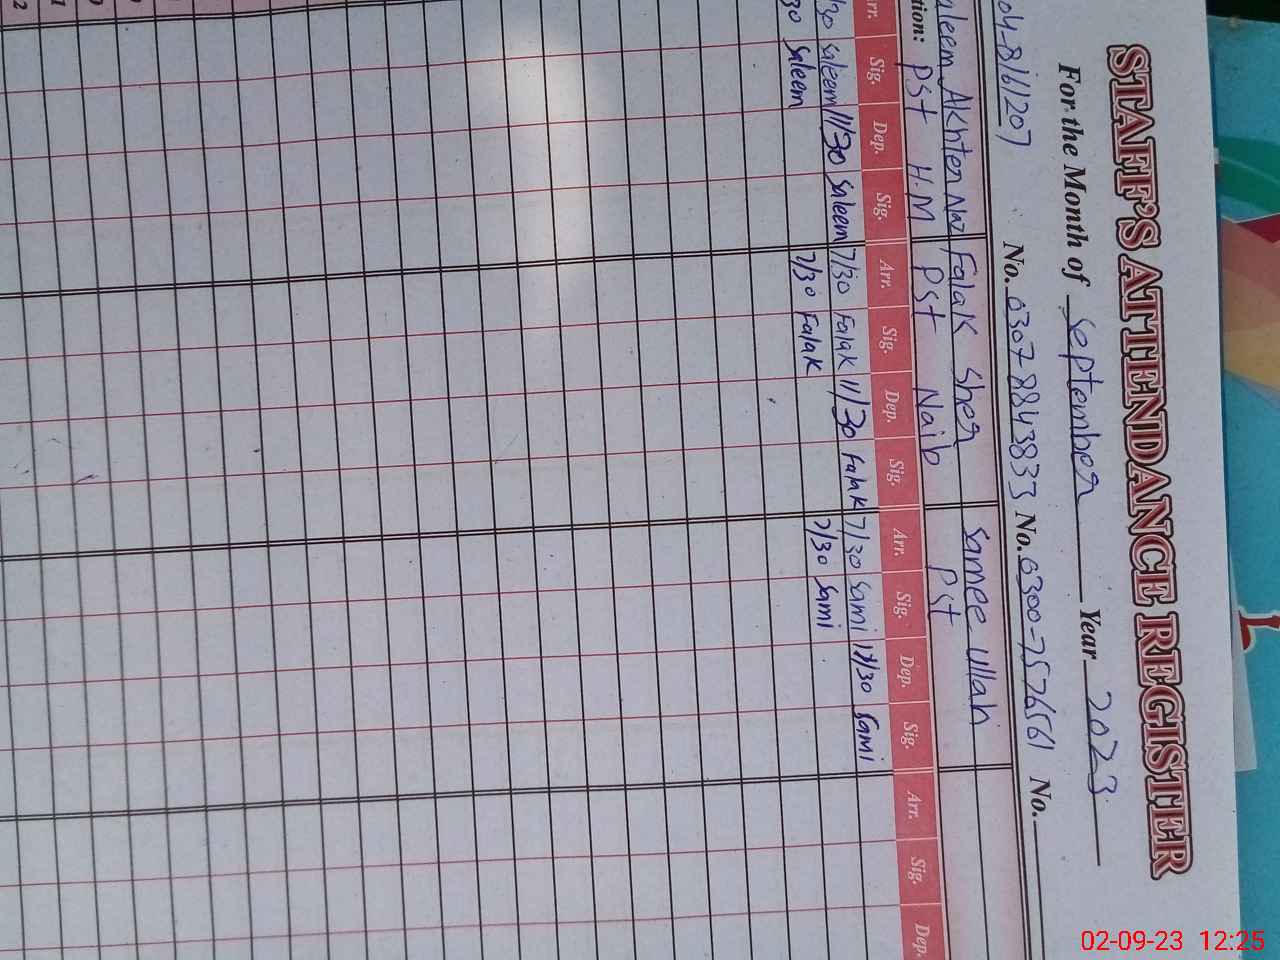 STAFF'S ATTENDANCE REGISTER
For the Month of September Year 2023
04-8161207 No. 0307 8843833 No. 0300-7576561 No.
aleem Akhter Naz Falak Sher Samee Ullah
tion: PST H.M PST Naib PST
rr. Sig. Dep. Sig. Arr. Sig. Dep. Sig. Arr. Sig. Dep. Sig. Arr. Sig. Dep.
/30 Saleem 11/30 Saleem 7/30 Falak 11/30 Falak 7/30 Sami 11/30 Sami
30 Saleem 7/30 Falak 7/30 Sami
02-09-23 12:25